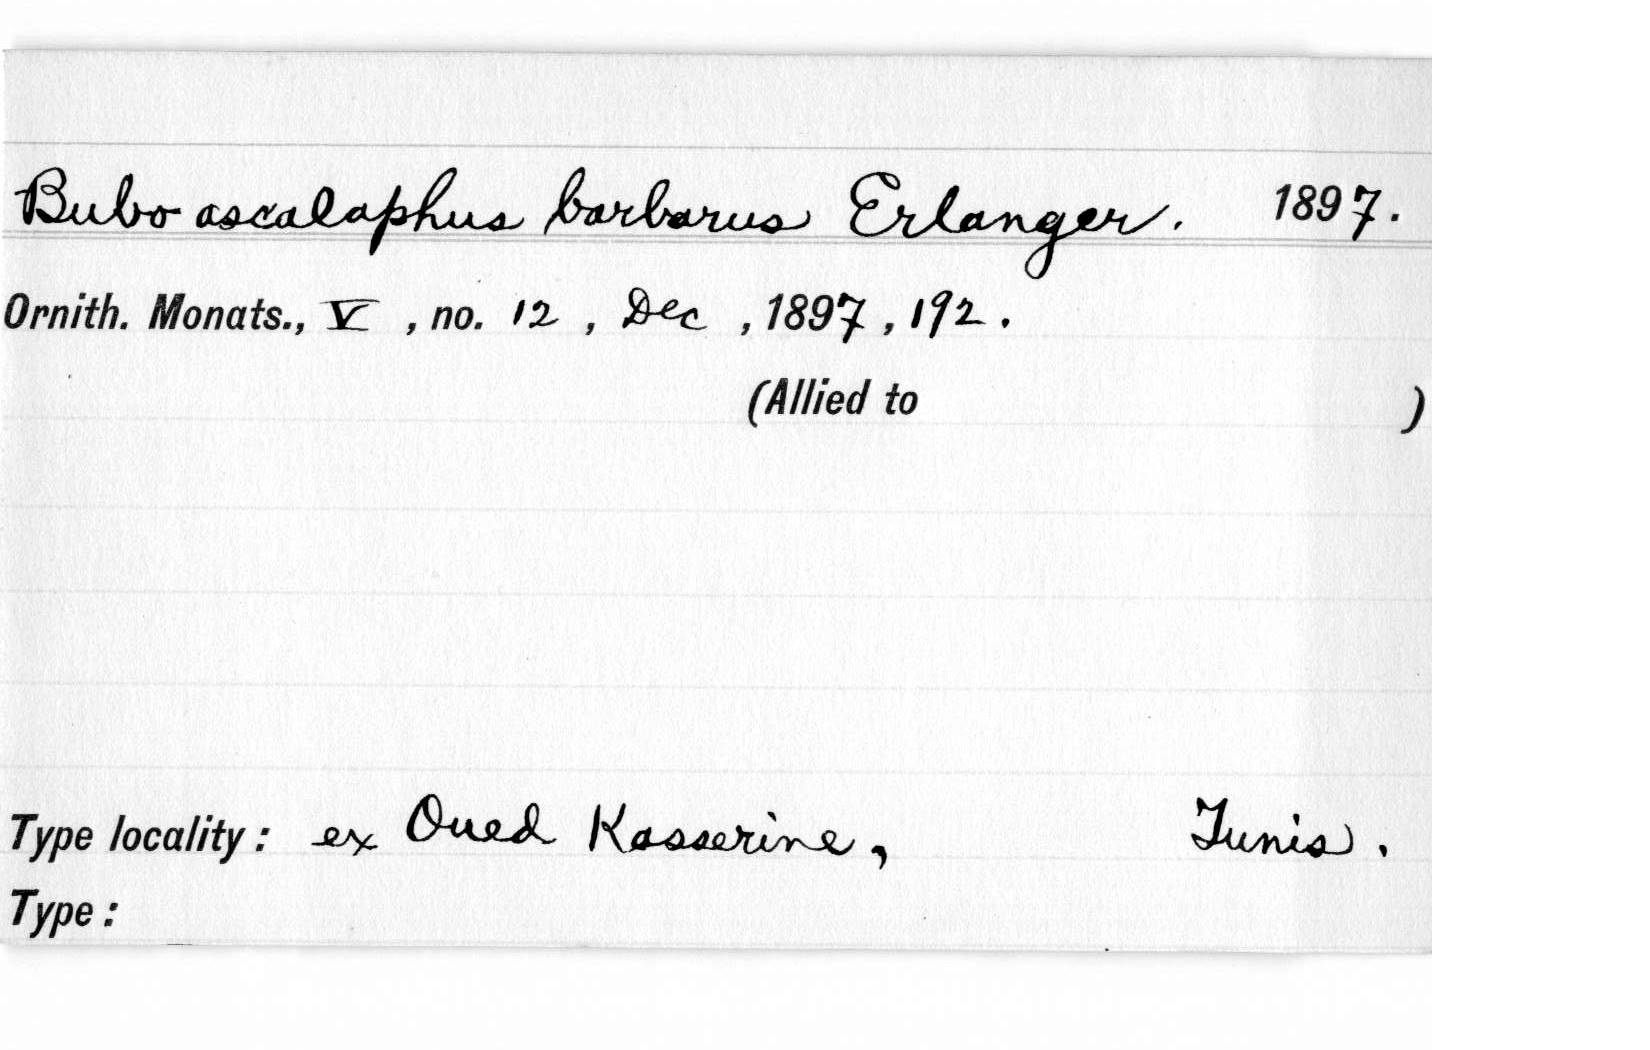 Bubo ascalaphus barbarus Erlanger. 1897.
Ornith. Monats., V, no. 12, Dec, 1897, 192.
(Allied to )
Type locality: ex Oued Kasserine, Tunis.
Type: